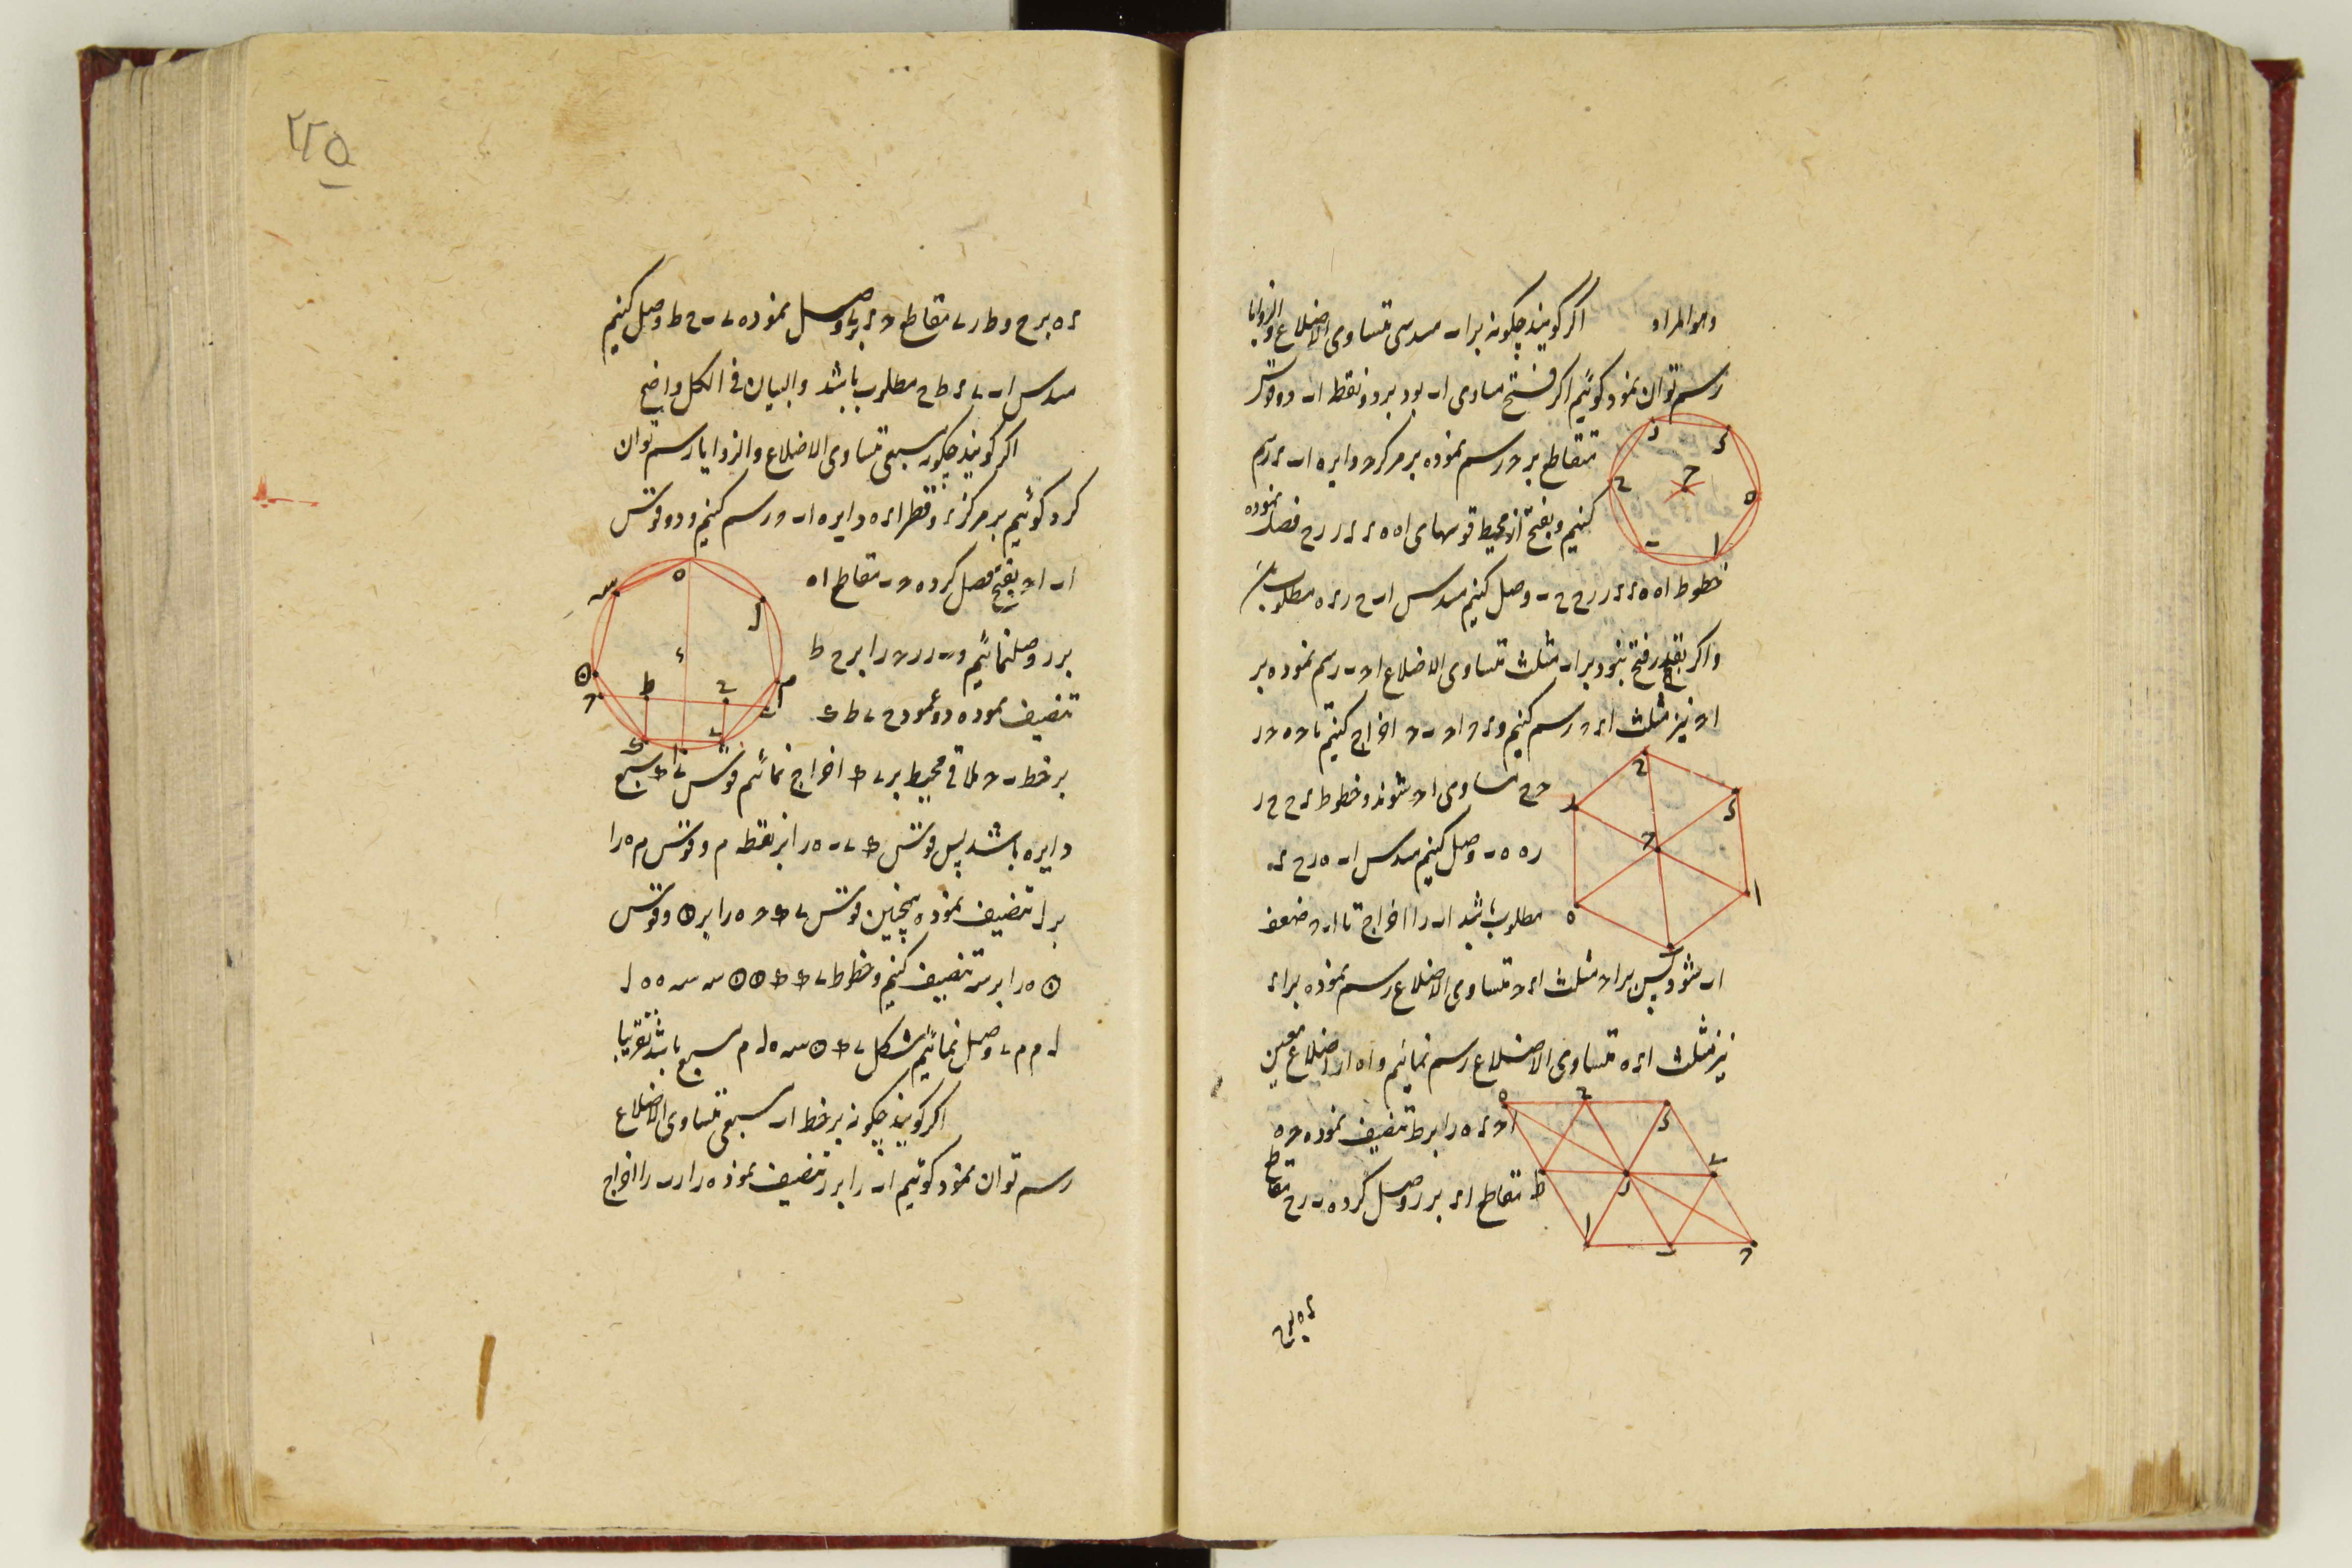 وهو المراد اگر گویند چگونه بر اب مسدسی متساوی الاضلاع و الزوایا
رسم توان نمود گوئیم اگر فتح مساوی اب بود بر دو نقطه اب دو قوس
متقاطع بر ح رسم نموده بر مرکز ح دایره اب رسم
کنیم و بفتح از محیط قوسهای اه ه د د ر ر ح فصل نموده
خطوط اه ه د د ر ر ح ح ب وصل کنیم مسدس اب ح ر د ه مطلوب باشد
و اگر بقدر فتح نبود بر اب مثلث متساوی الاضلاع اح ب رسم نموده بر
اح نیز مثلث اد ح رسم کنیم و د ح اح ب ح اخراج کنیم تا ح ه ح ر
ح ح متساوی اح شوند و خطوط د ح ح ر
ر ه ه ب وصل کنیم مسدس اب ه ر ح د
مطلوب باشد اب را اخراج تا اح ضعف
اب شود پس بر اح مثلث اد ح متساوی الاضلاع رسم نموده بر اد
نیز مثلث اد ه متساوی الاضلاع رسم نمائیم و اه از اضلاع معین
اح د ه را بر ط تنصیف نموده ح ه
متقاطع اد بر ر وصل کرده ب ر ح تقاطع
د ه بر ح
۲۲۵
د ه بر ح و ط ر ی متقاطع ح د بر ی وصل نموده ی ب ح ط وصل کنیم
مسدس اب ی د ط ح مطلوب باشد والبیان فی الکل واضح
اگر گویند چگونه مسبعی متساوی الاضلاع والزوایا رسم توان
کرد گوئیم بر مرکز ء و قطر اء ه دایره اب ح رسم کنیم و دو قوس
اب اح بفتح فصل کرده ح ب متقاطع اه
بر ر وصل نمائیم و ب ر ر ح را بر ح ط
تنصیف نموده دو عمود ح ی ط ک
بر خط ب ح ملاقی محیط بر ی ک اخراج نمائیم قوس ی ک سبع
دایره باشد پس قوس ک ی ب ه را بر نقطه م و قوس م ه را
بر ل تنصیف نموده همچنین قوس ی ک ح ه را بر ن و قوس
ن ه را بر س تنصیف کنیم و خطوط ی ک ک ن ن س س ه ه ل
ل م م ی وصل نمائیم شکل ی ک ن س ه ل م مسبع باشد تقریبا
اگر گویند چگونه بر خط اب مسبعی متساوی الاضلاع
رسم توان نمود گوئیم اب را بر ر تنصیف نموده ر ا ر ب را اخراج